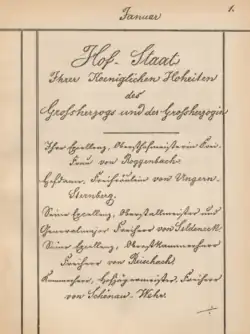 Januar
1.
Hof-Staat
Ihrer Koeniglichen Hoheiten
des
Großherzogs und der Großherzogin
Ihre Exzellenz, Obersthofmeisterin Frei.
Frau von Roggenbach.
Hofdame, Freifräulein von Ungern-
Sternberg.
Seine Exzellenz, Oberstallmeister und
Generalmajor Freiherr von Seldeneck.
Seine Exzellenz, Oberstkammerherr
Freiherr von
Kammerherr, Hofjägermeister, Freiherr
von Schönau-Wehr.